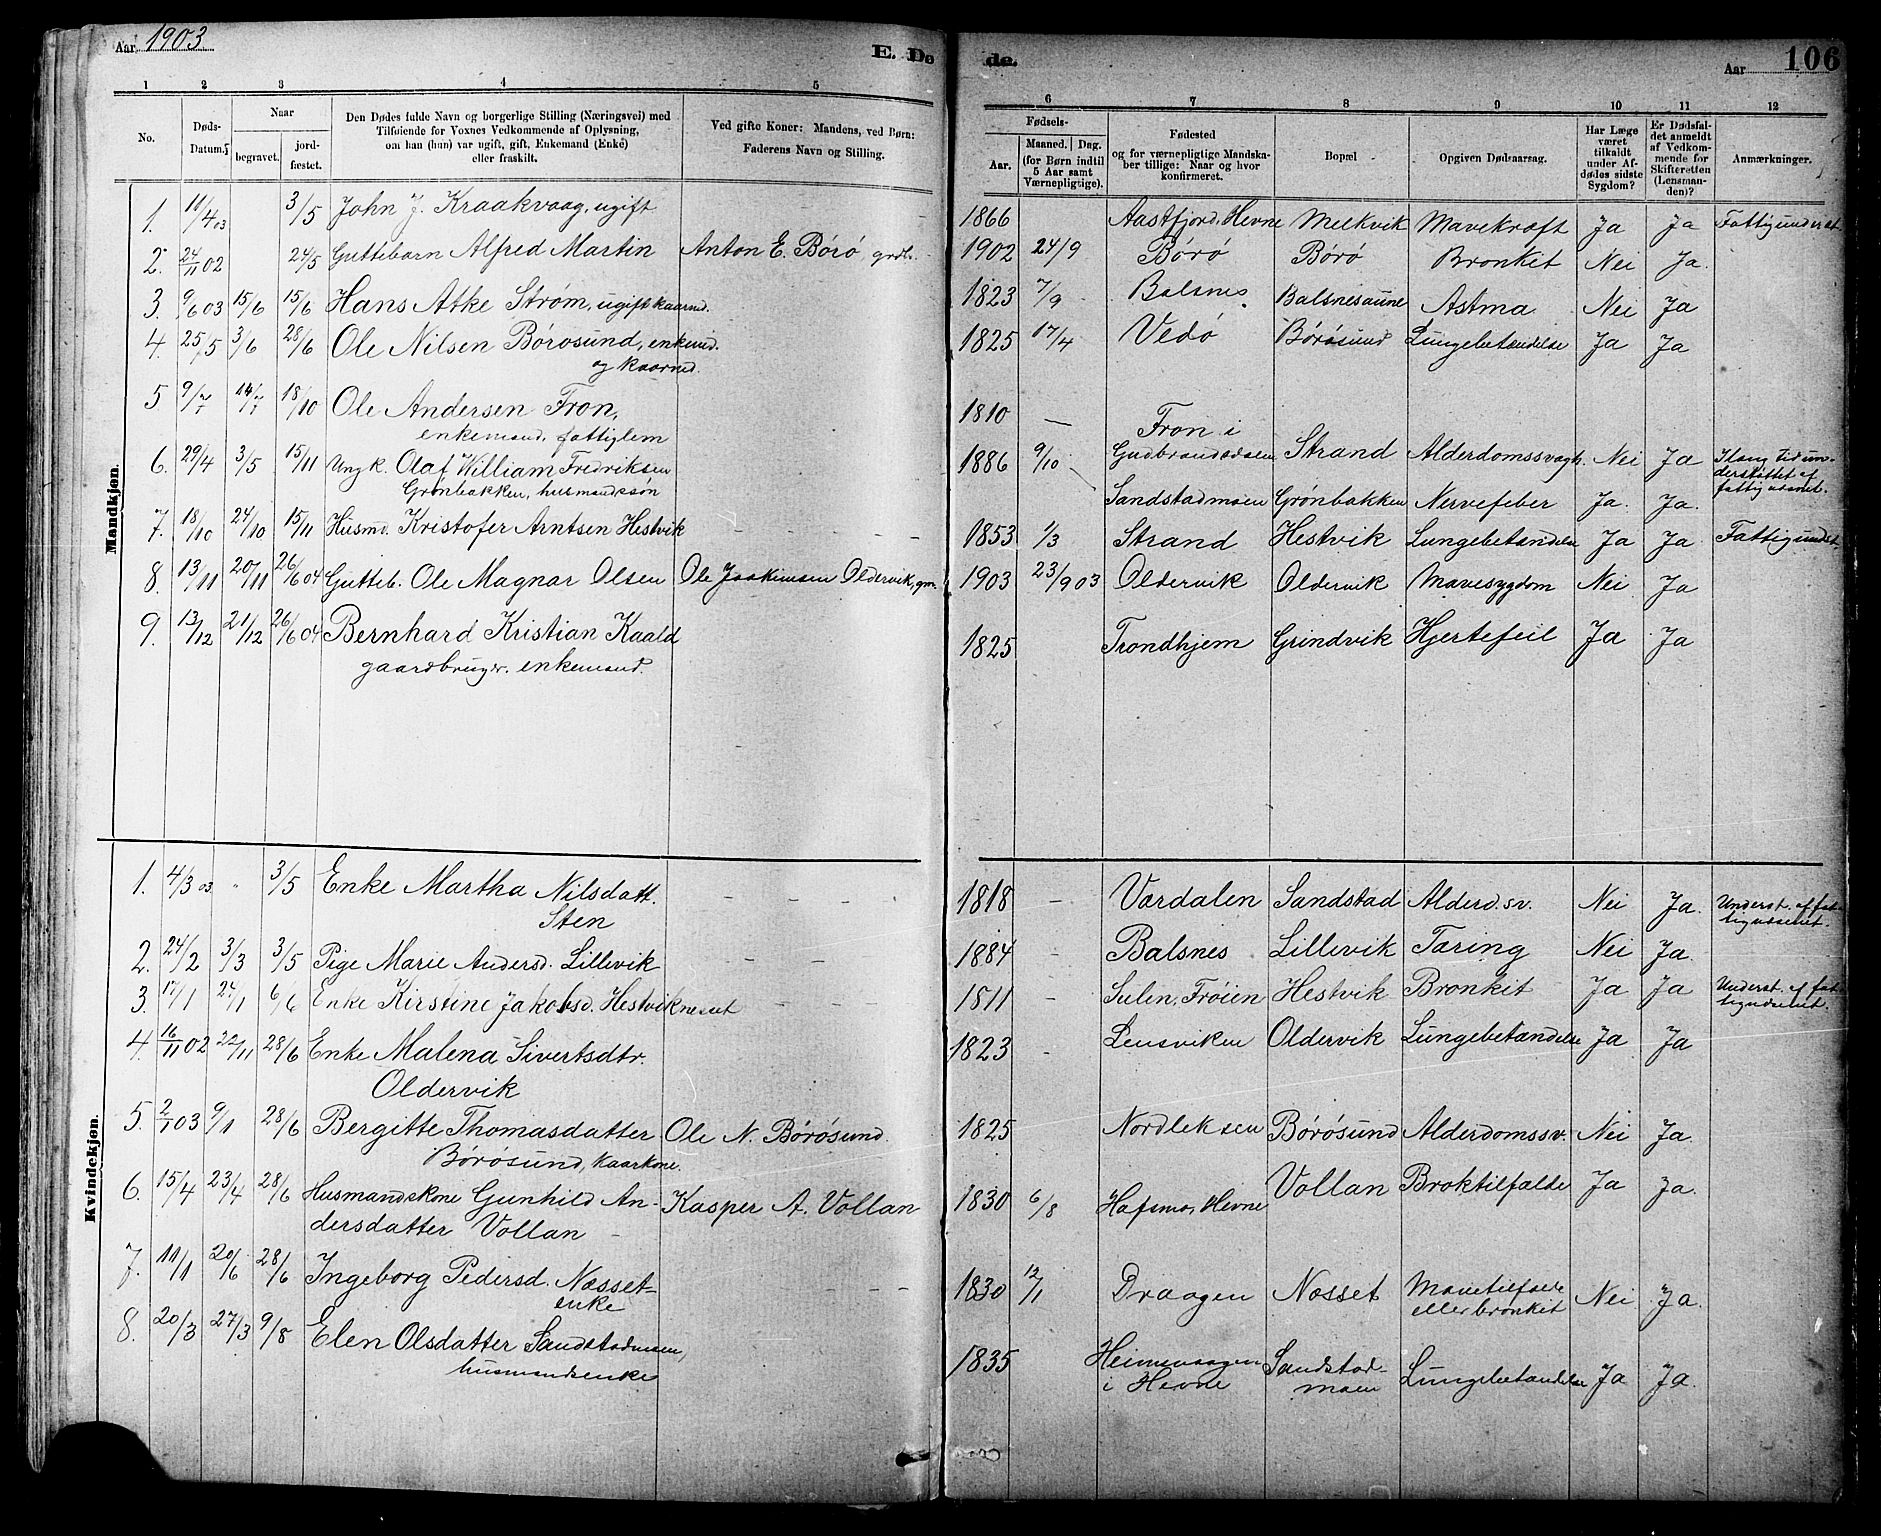 Aar 1903
E. Dø
de.
Aar
106
1 2 3 4 5
6 7 8 9 10 11 12
No.
Døds-
Datum.
Naar
begravet.
jord-
fæstet.
Den Dødes fulde Navn og borgerlige Stilling (Næringsvei) med
Tilføiende for Voxnes Vedkommende af Oplysning,
om han (hun) var ugift, gift, Enkemand (Enke)
eller fraskilt.
Ved gifte Koner: Mandens, ved Børn:
Faderens Navn og Stilling.
Fødsels-
Aar.
Maaned. Dag.
(for Børn indtil
5 Aar samt
Værnepligtige).
Fødested
og for værnepligtige Mandska-
ber tillige: Naar og hvor
konfirmeret.
Bopæl
Opgiven Dødsaarsag.
Har Læge
været
tilkaldt
under Af-
dødes sidste
Sygdom?
Er Dødsfal-
det anmeldt
af Vedkom-
mende for
Skifteretten
(Lensman-
den)?
Anmærkninger.
Mandkjøn.
1. 11/4 03 3/5 John J. Kraakvaag, ugift - - 1866 Aastfjord, Hevne Melkvik Mavekræft Ja Ja Fattigunderst.
2. 24/11 02 24/5 Guttebarn Alfred Martin Anton E. Børø, grdb. 1902 24/9 Børø Børø Bronkit Nei Ja.
3. 9/6 03 15/6 15/6 Hans Atke Strøm, ugift kaarmd. 1823 7/9 Balsnes Balsnesaune Astma Nei Ja
4. 25/5 3/6 28/6 Ole Nilsen Børøsund, enkemd. 1825 17/4 Vedø Børøsund Lungebetændelse Ja Ja
og kaarmd.
5 9/7 14/7 18/10 Ole Andersen Fron, 1810 - Fron i
enkemand, fattiglem Gudbrandsdalen Strand Alderdomssvagh. Nei Ja I lang tid un-
derstøttet af
fattigvæsenet.
6. 29/4 3/5 15/11 Ungk. Olaf William Fredriksen 1886 9/10
Grønbakken, husmandssøn Sandstadmoen Grønbakken Nervefeber Ja. Ja.
7. 18/10 24/10 15/11 Husmd. Kristofer Arntsen Hestvik - - - - 1853 1/3 Strand Hestvik Lungebetændelse Ja Ja Fattigundst.
8. 13/11 20/11 26/6 04 Gutteb. Ole Magnar Olsen Ole Joakimsen Oldervik, gm. 1903 23/9 03 Oldervik Oldervik Mavesygdom Nei Ja
9. 13/12 21/12 26/6 04 Bernhard Kristian Kaald 1825 Trondhjem Grindvik Hjertefeil Ja Ja
gaardbruger. enkemand.
Kvindekjøn.
1. 4/3 03 " 3/5 Enke Martha Nilsdatt. - - - - 1818 - Værdalen Sandstad Alderd.sv. Nei Ja. Underst. af fat-
Sten tigvæsenet.
2. 24/2 3/3 3/5 Pige Marie Andersd. Lillevik - - - 1884 - Balsnes Lillevik Tæring Nei Ja.
3. 17/1 24/1 6/6 Enke Kirstine Jakobsd. Hestviknesset 1811 - Sulen, Frøien Hestvik Bronkit Ja Ja Underst. af fat-
tigvæsenet.
4. 16/11 02 22/11 28/6 Enke Malena Sivertsdtr. 1823 - Lensviken Oldervik Lungebetændelse Ja Ja
Oldervik
5. 2/1 03 9/1 28/6 Bergitte Thomasdatter Ole N. Børøsund. 1825 Nordleksen Børøsund Alderdomssv. Nei Ja.
Børøsund, kaarkone.
6. 15/4 23/4 28/6 Husmandskone Gunhild An- Kasper A. Vollan 1830 6/8 Hafsmo, Hevne Vollan Broktilfælde Ja Ja.
dersdatter Vollan -
7. 11/1 20/6 28/6 Ingeborg Pedersd. Næsset- - - - 1830 12/1 Draagen Næsset Mavetilfælde Nei Ja.
enke eller bronkit
8. 20/3 27/3 9/8 Elen Olsdatter Sandstadmoen, 1835 Heimsvaagen Sandstad- Lungebetændelse Ja Ja.
husmandsenke i Hevne moen